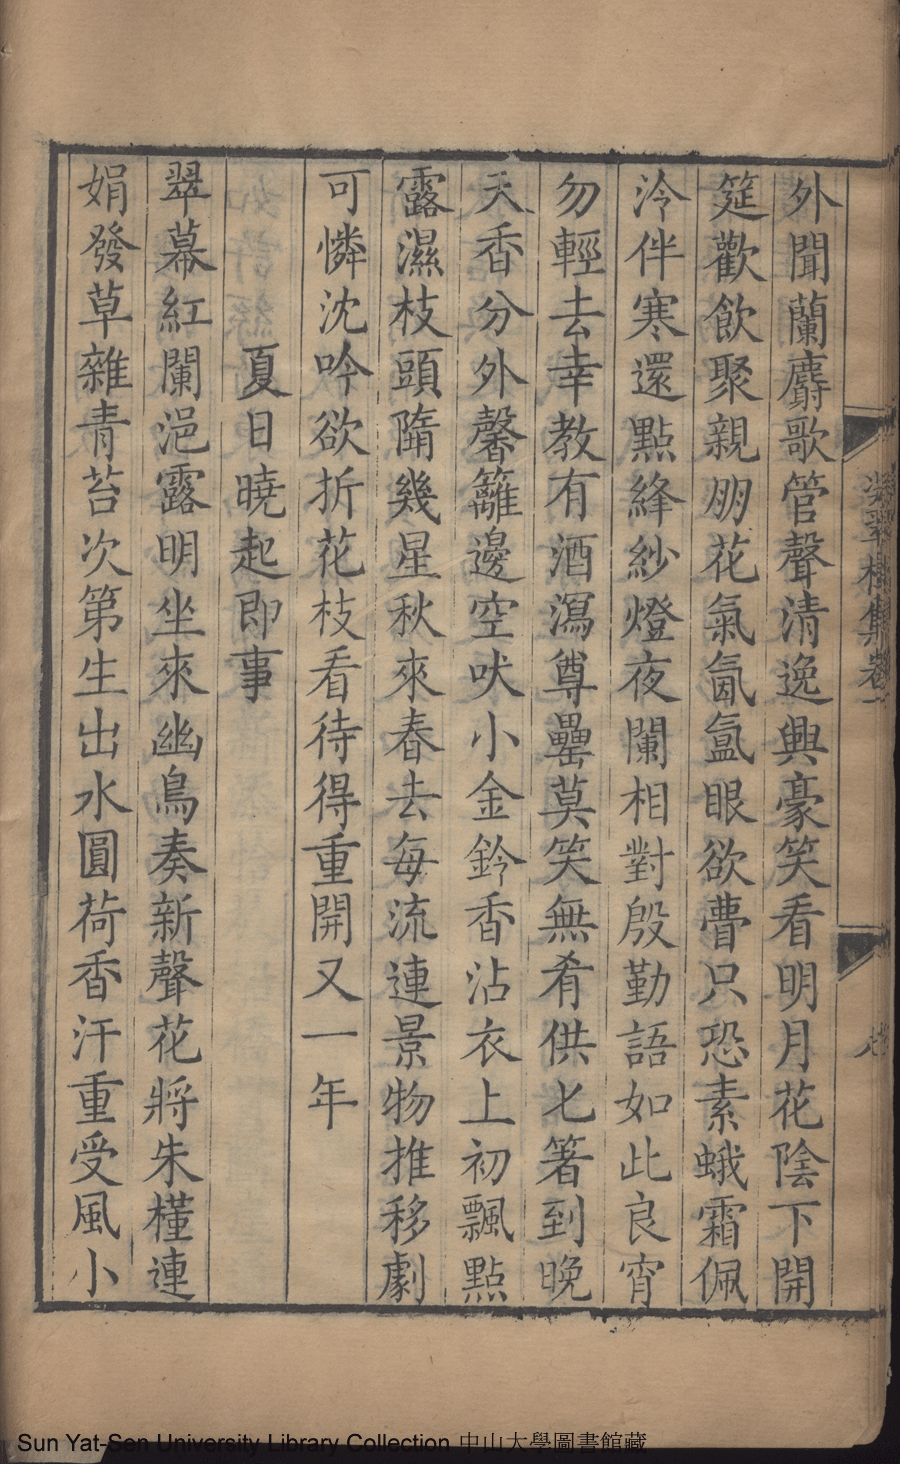 外聞蘭麝歌管聲清逸興豪笑看明月花陰下開
筵歡飲聚親朋花氣氤氳眼欲瞢只恐素蛾霜佩
泠伴寒還點絳紗燈夜闌相對殷勤語如此良宵
勿輕去幸教有酒瀉尊罍莫笑無肴供匕箸到晚
天香分外馨籬邊空吠小金鈴香沾衣上初飄點
露濕枝頭隋幾星秋來春去每流連景物推移劇
可憐沈吟欲折花枝看待得重開又一年
夏日曉起即事
翠幕紅闌浥露明坐來幽鳥奏新聲花將朱槿連
娟發草雜青苔次第生出水圓荷香汗重受風小
集卷一
Sun Yat-Sen University Library Collection 中山大學圖書館藏